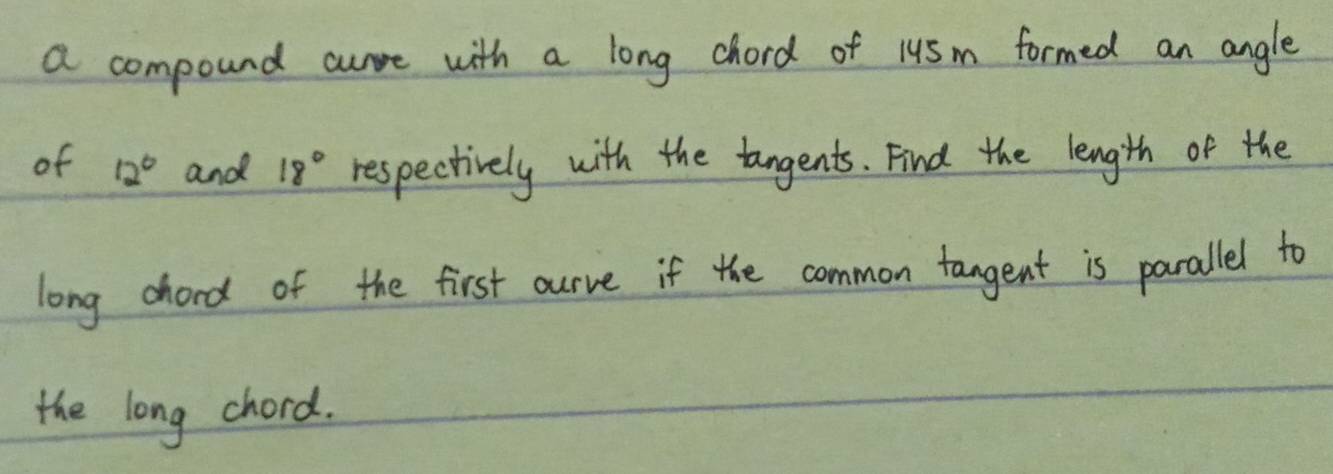 a compound curve with a long chord of 145m formed an angle
of 12° and 18° respectively with the tangents. Find the length of the
long chord of the first curve if the common tangent is parallel to
the long chord.